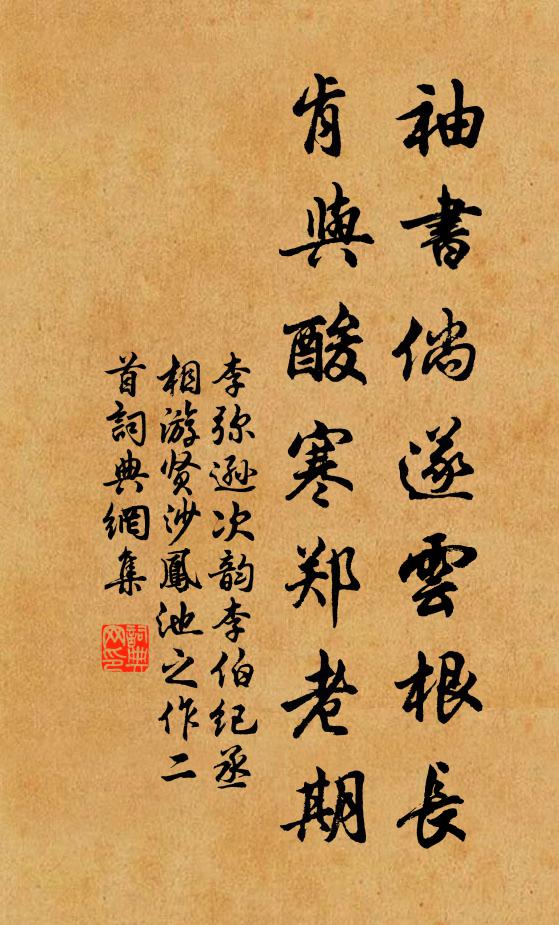 袖書倘遂雲根長
肯與酸寒郑老期
李弥遜次韵李伯纪丞
相游贤沙鳳池之作二
首詞典網集
詞典网印